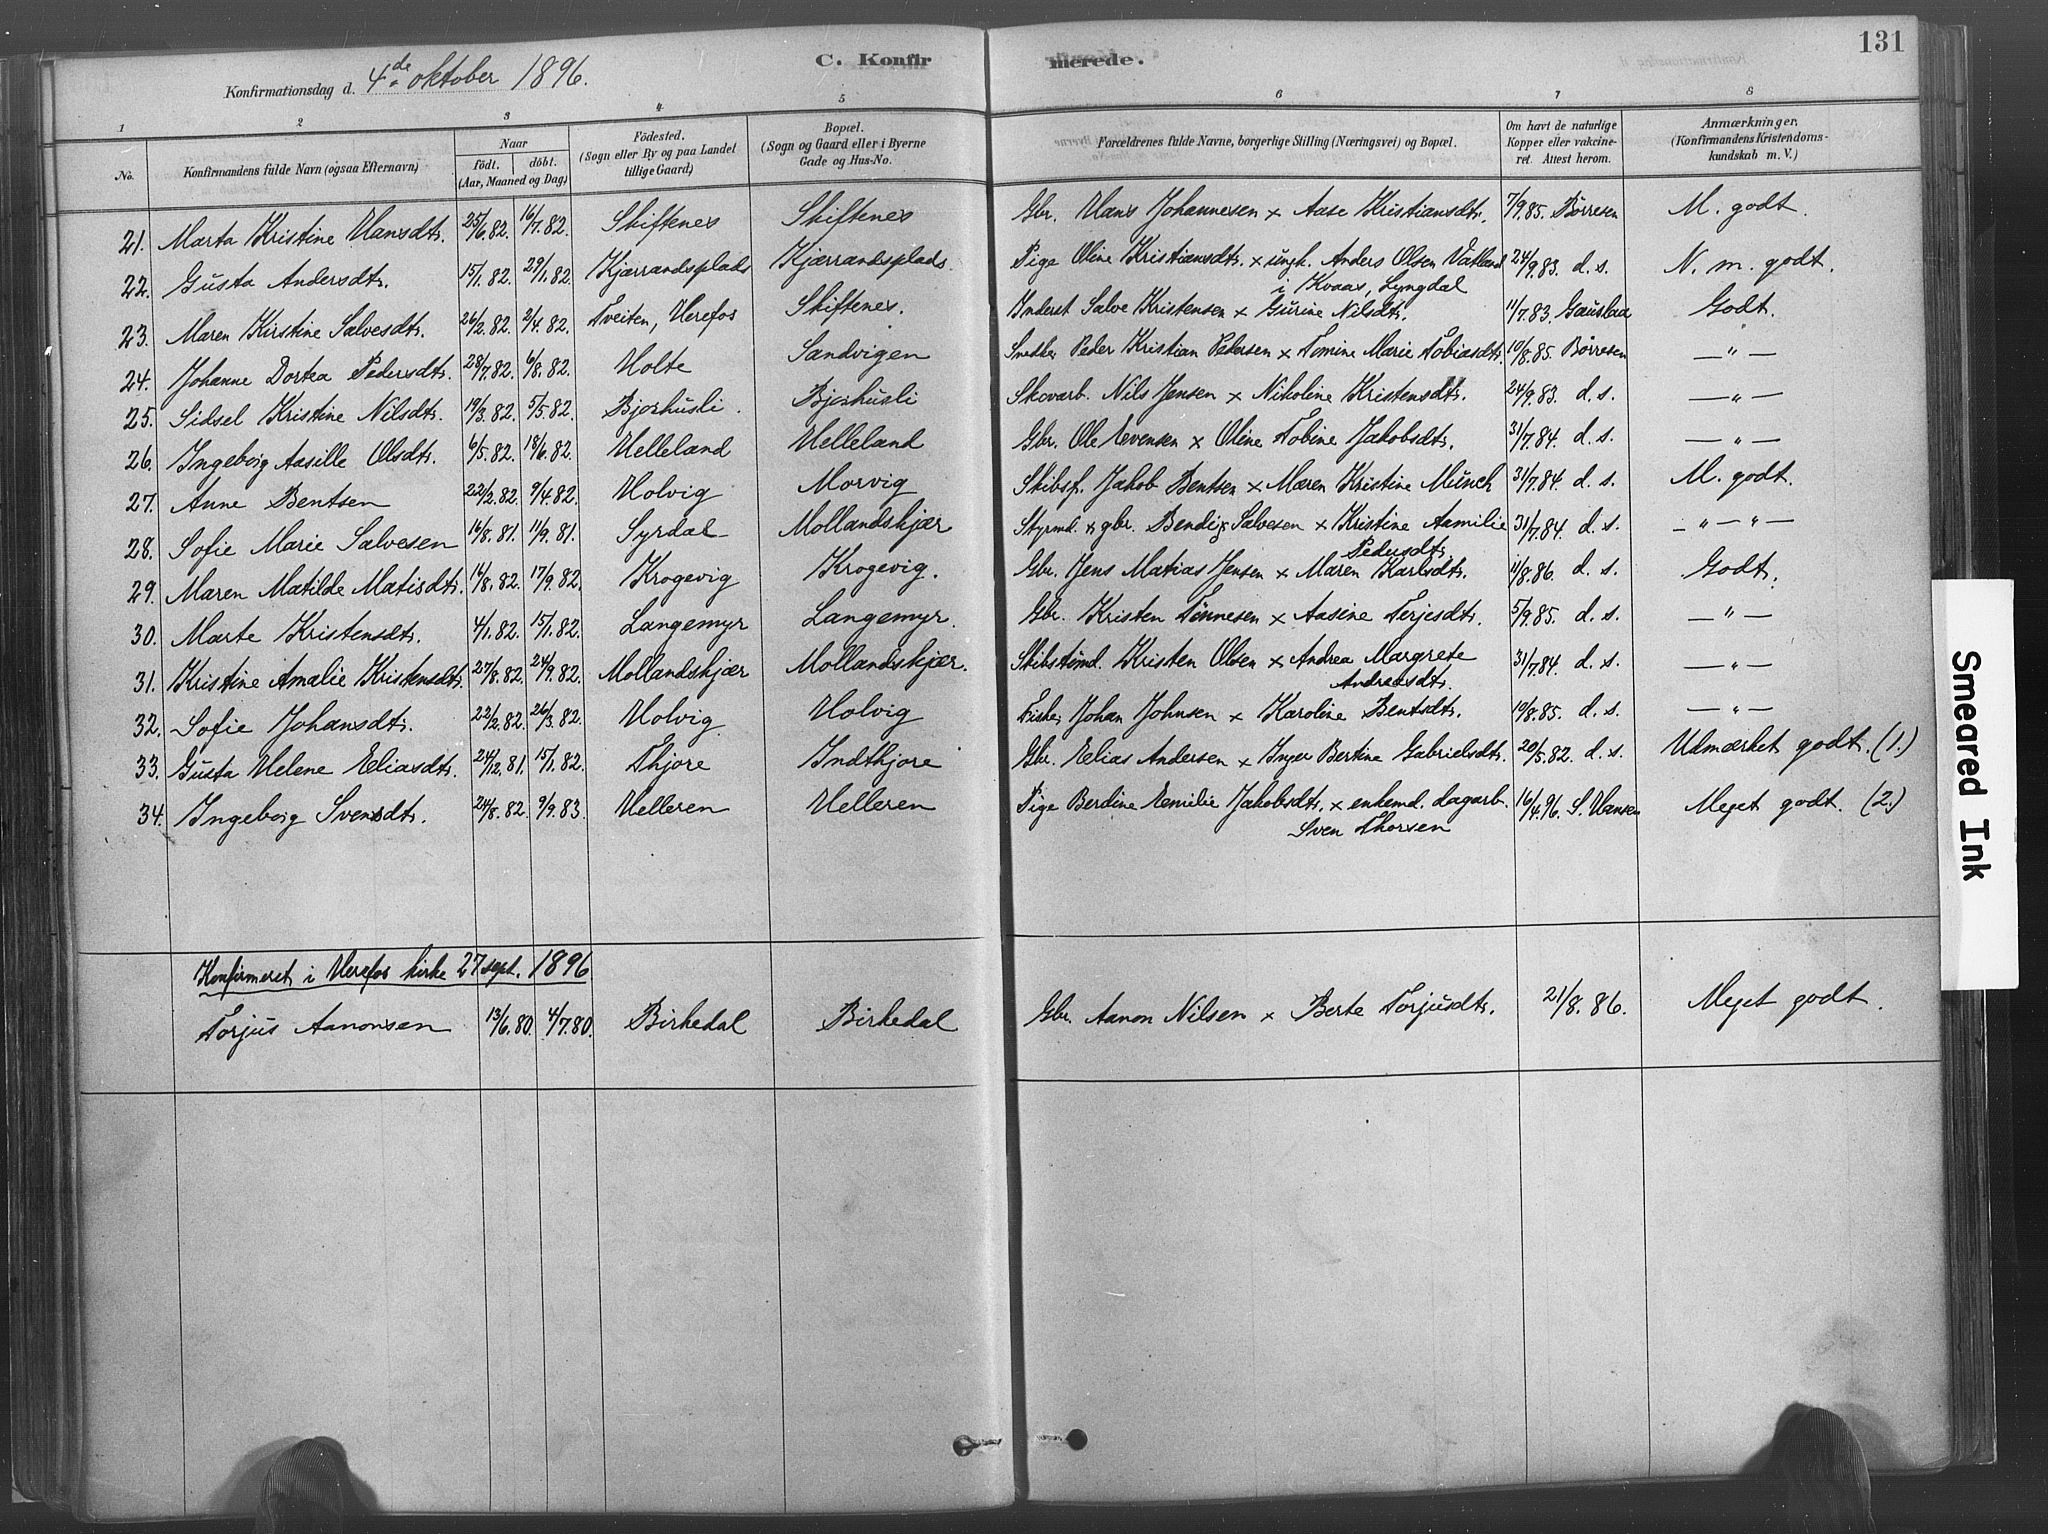 131
Konfirmationsdag d. 4de oktober 1896.
C. Konfirmerede.
1 2 3 4 5 6 7 8
No. Konfirmandens fulde Navn (ogsaa Efternavn) Naar födt. döbt. (Aar, Maaned og Dag) Födested. (Sogn eller By og paa Landet tillige Gaard) Bopæl. (Sogn og Gaard eller i Byerne Gade og Hus-No. Forældrenes fulde Navne, borgerlige Stilling (Næringsvei) og Bopæl. Om havt de naturlige Kopper eller vakcineret. Attest herom. Anmærkninger. (Konfirmandens Kristendomskundskab m. V.)
21. Marta Kristine Hansdtr. 25/6.82. 16/7.82. Skiftenes Skiftenes Gbr. Hans Johannesen x Aase Kristiansdtr. 7/9.85. Børresen M. godt.
22. Gusta Andersdtr. 15/1.82. 29/1.82. Kjærrandsplads Kjærrandsplads. Pige Oline Kristiansdtr. x ungk. Anders Olsen Vatland 24/9.83. d. s. N. m. godt.
i Kvaas, Lyngdal
23. Maren Kirstine Salvesdtr. 26/2.82. 2/4.82. Tveiten, Herefos Skiftenes. Inderst Salve Kristensen x Gurine Nilsdtr. 11/7.83. Gauslaa Godt.
24. Johanne Dortea Pedersdtr. 28/7.82. 6/8.82. Holte Sandvigen Snedker Peder Kristian Pedersen x Tomine Marie Tobiasdtr. 10/8.85. Børresen — " —
25. Sidsel Kristine Nilsdtr. 19/3.82. 5/5.82. Bjorhusli. Bjorhusli Skovarb. Nils Jensen x Nikoline Kristensdtr. 24/9.83. d. s. — " —
26. Ingeborg Aasille Olsdtr. 6/5.82. 18/6.82. Helleland Helleland Gbr. Ole Evensen x Oline Tobine Jakobsdtr. 31/7.84. d. s. — " —
27. Anne Bentsen 22/2.82. 9/4.82. Holvig Morvig Skibsf. Jakob Bentsen x Maren Kristine Münch 31/7.84. d. s. M. godt.
28. Sofie Marie Salvesen 16/8.81. 11/9.81. Syrdal Mollandskjær Styrmd. x gbr. Bendix Salvesen x Kristine Aamilie 31/7.84. d. s. — " — " —
Pedersdtr.
29. Maren Matilde Matisdtr. 14/8.82. 17/9.82. Krogevig Krogevig. Gbr. Jens Matias Jensen x Maren Karlsdtr. 11/8.86. d. s. Godt.
30. Marte Kristensdtr. 4/1.82. 15/1.82. Langemyr Langemyr. Gbr. Kristen Tønnesen x Aasine Terjesdtr. 5/9.85. d. s. — " —
31. Kristine Amalie Kristensdtr. 27/8.82. 24/9.82. Mollandskjær Mollandskjær. Skibstømd. Kristen Olsen x Andrea Margrete 31/7.84. d. s. — " —
Andreasdtr.
32. Sofie Johansdtr. 22/2.82. 26/3.82. Holvig Holvig Fisker Johan Johnsen x Karoline Bentsdtr. 19/8.85. d. s. — " —
33. Gusta Helene Eliasdtr. 24/12.81. 15/1.82. Thjore Indthjore Gbr. Elias Andersen x Inger Bertine Gabrielsdtr. 20/5.82. d. s. Udmærket godt. (1.)
34. Ingeborg Svensdtr. 24/8.82. 9/9.83. Helleren Helleren Pige Berdine Emilie Jakobsdtr. x enkemd. dagarb. 16/4.96. S. Hansen Meget godt. (2.)
Sven Thorsen
Konfirmeret i Herefos kirke 27 sept. 1896
Torjus Aanonsen 13/6.80. 4/7.80. Birkedal Birkedal Gbr. Aanon Nilsen x Berte Torjusdtr. 21/8.86. Meget godt.
Smeared Ink